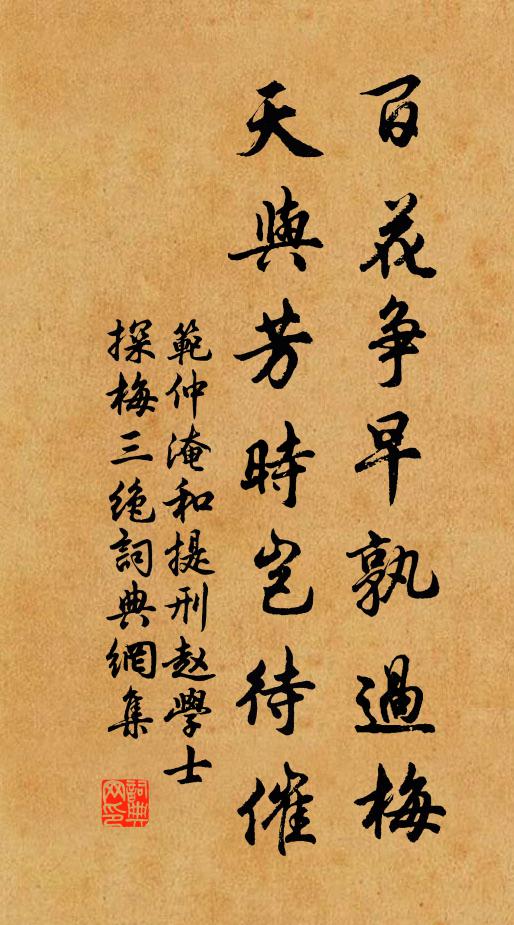 百花争早孰過梅
天與芳時豈待催
範仲淹和提刑趙學士
探梅三绝詞典網集
詞典网印